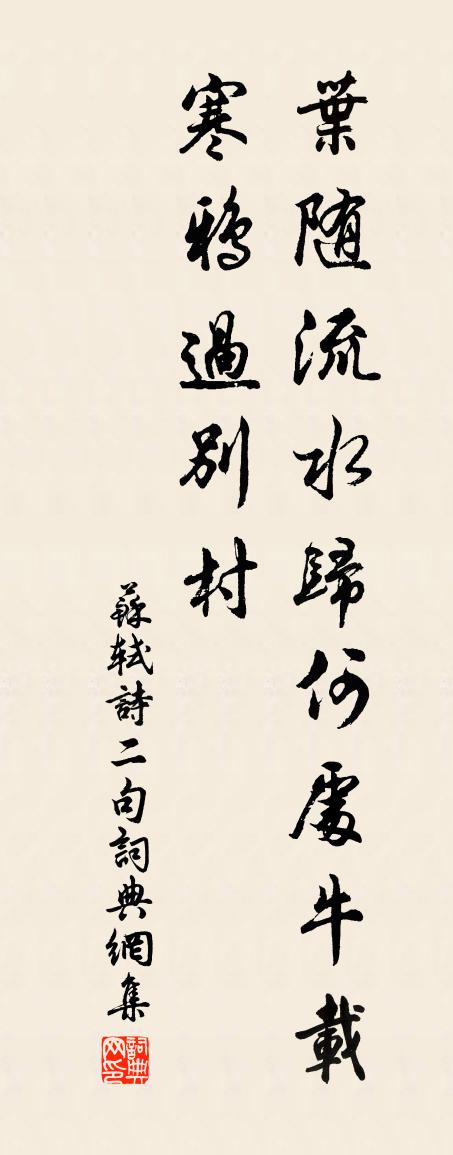 葉随流水歸何處牛載
寒鴉過別村
蘇軾詩二句詞典網集
詞典
网印